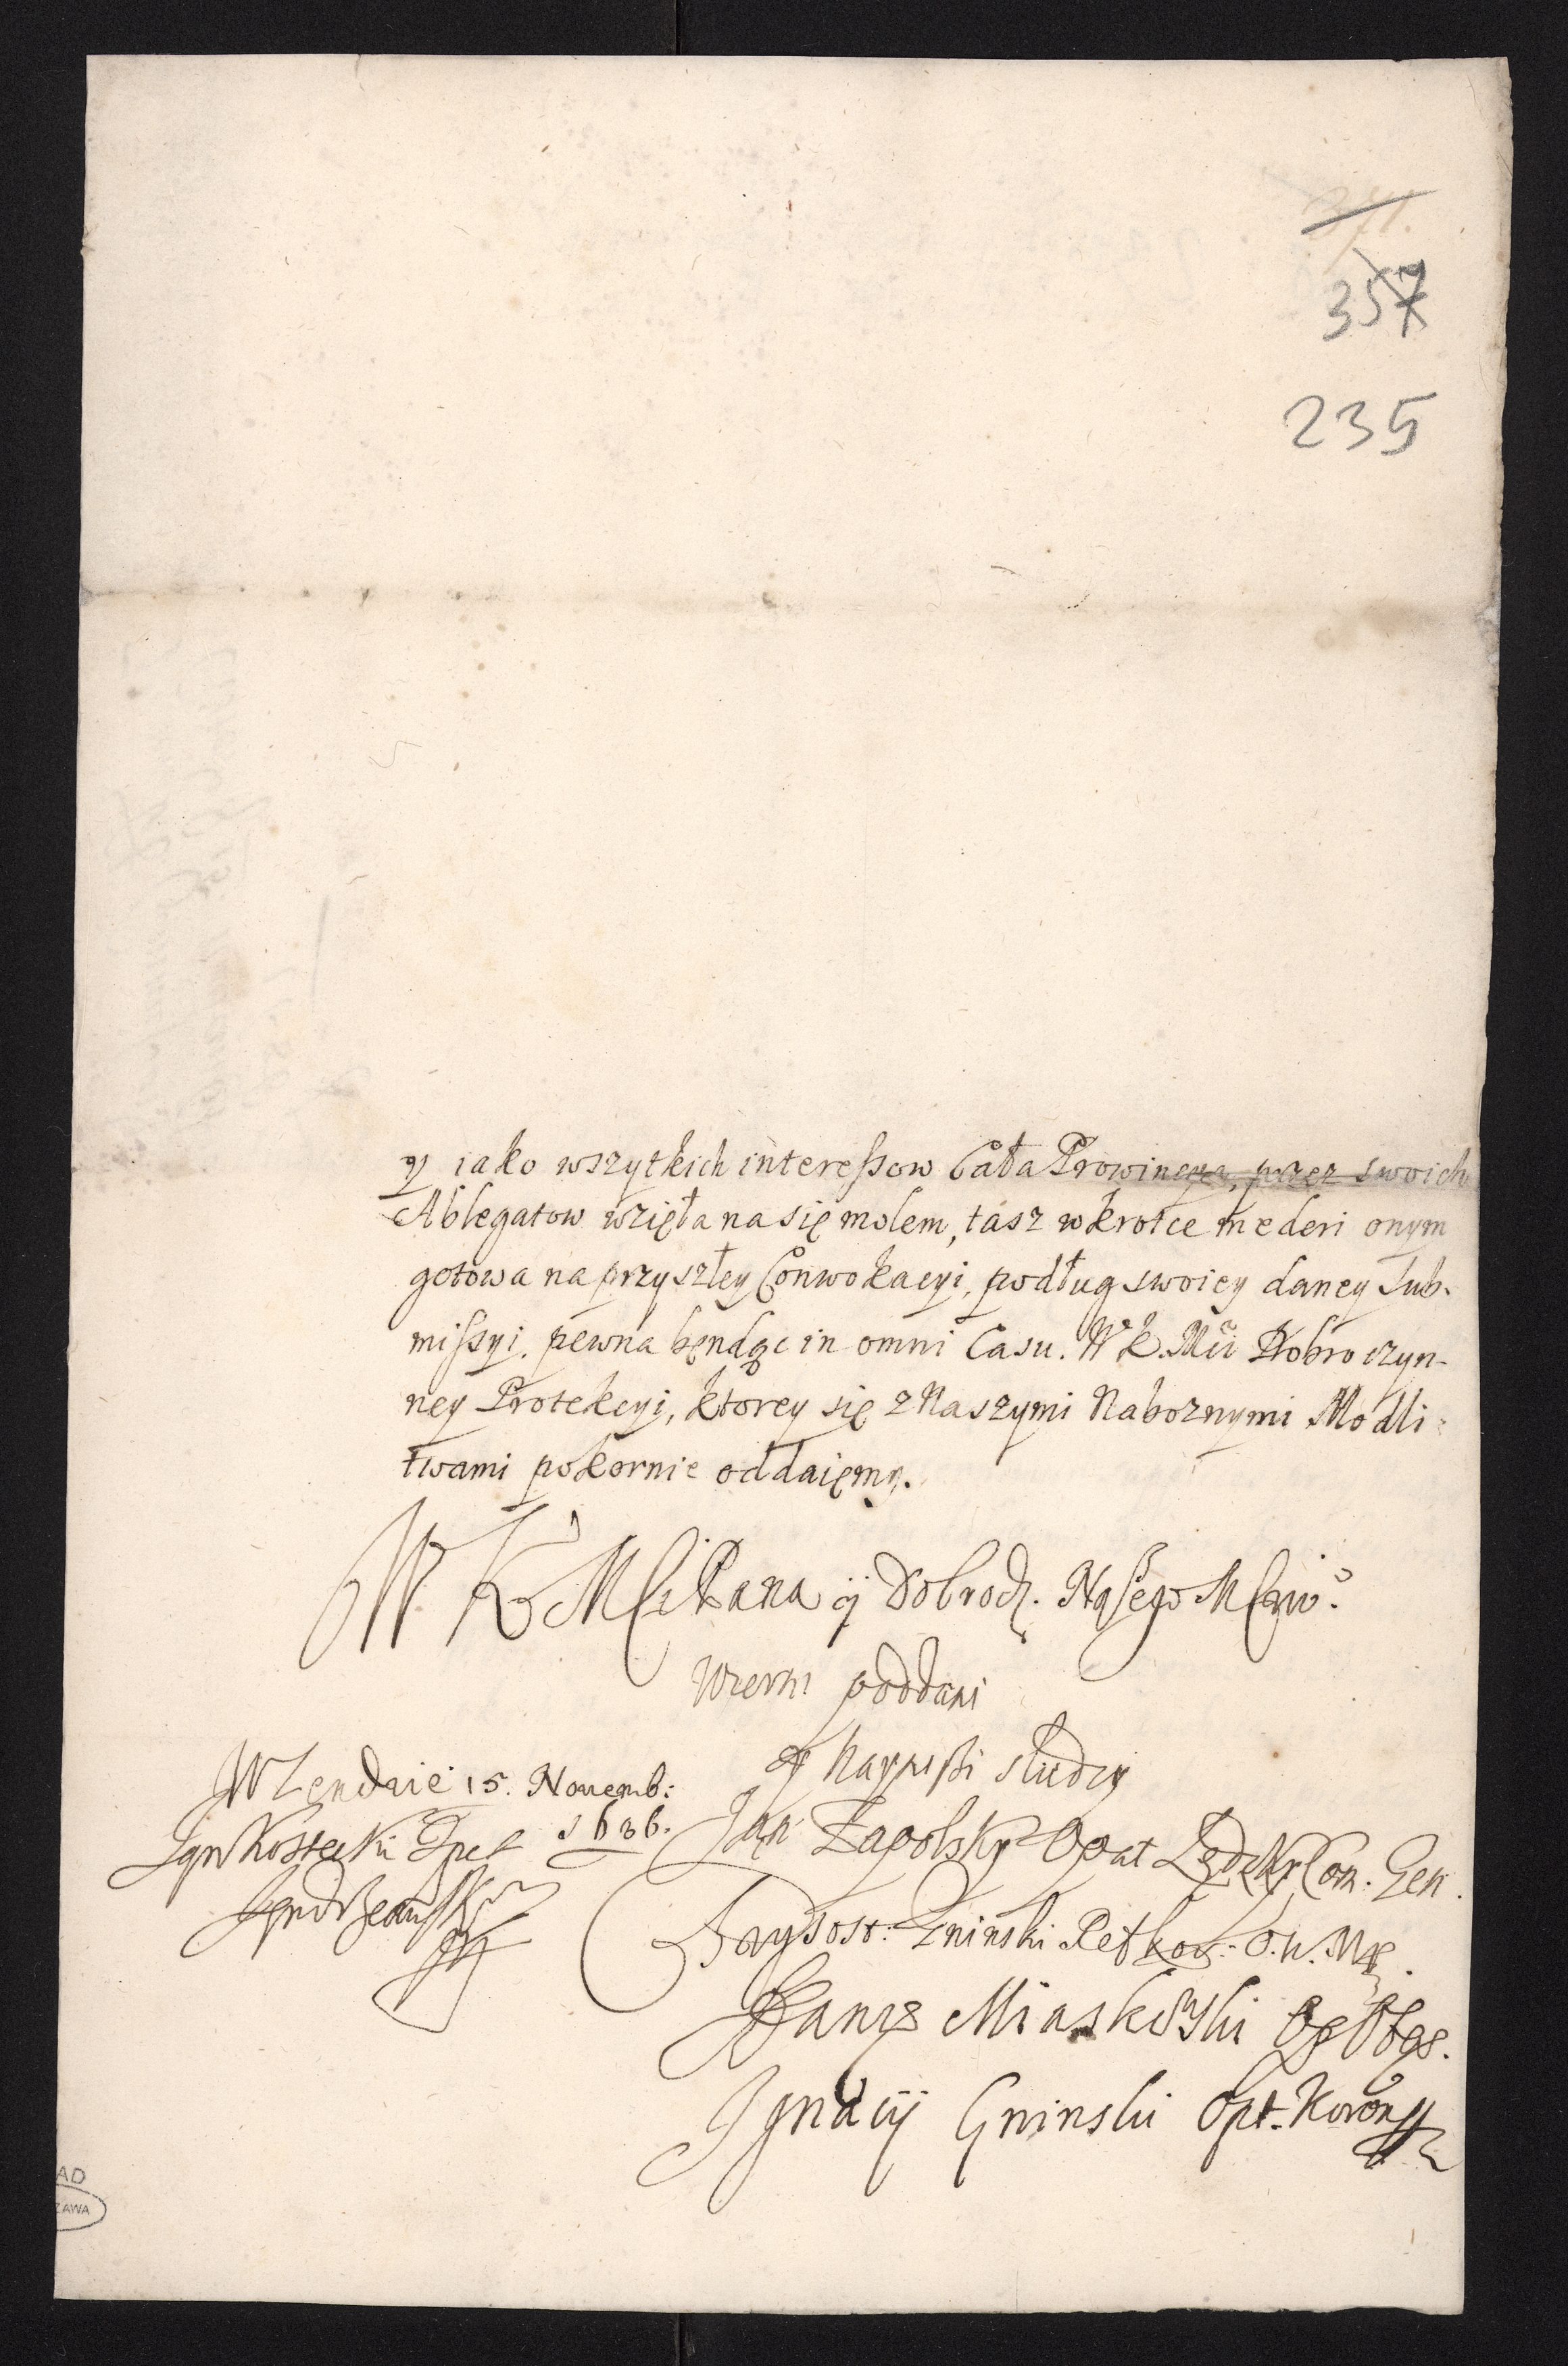 371.
357
235
y iako wszytkich interessow Cała Prowincya, przez swoich
Ablegatow wzięła na się molem, tasz wkrotce mederi onym
gotowa na przyszłey Conwokacyi, podług swoiey daney Sub-
missyi, pewna będąc in omni Casu. W K. Mći Dobroczyn-
ney Protekcyi, ktorey się z Naszymi Naboznymi Modli-
twami pokornie oddaięmy.
W K Mści Pana ÿ Dobrodz. Nasego Mściwo
Wierni poddani
y Naynissi słudzy
W Lendzie 15. Nouemb:
1686.
Jan Zapolsky Opat Lędzky Com. Gen.
Jan Kostecki
Chrysost: Gninski
Miaskowski
Ignacÿ Gninski Opt. Koron
AD
ZAWA